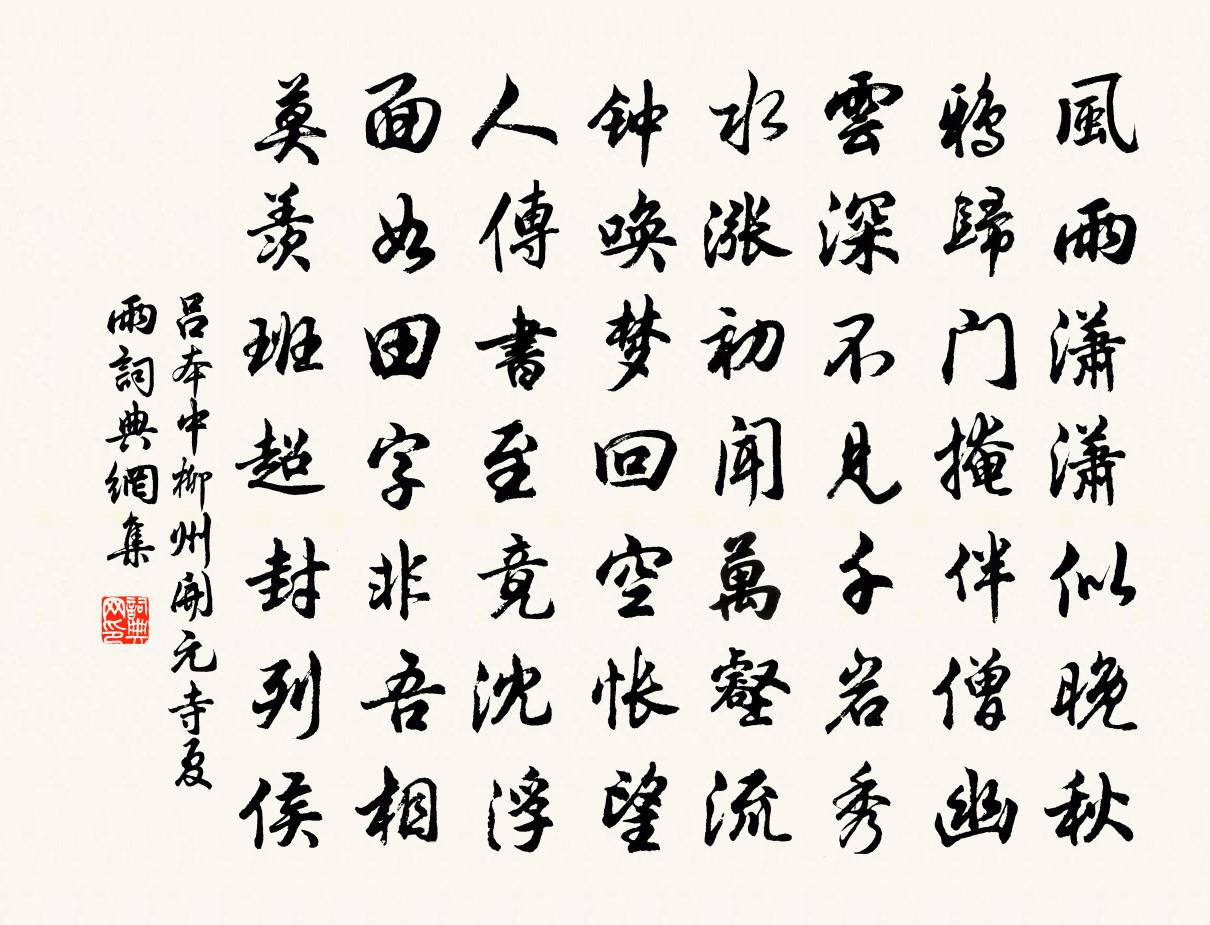 風雨瀟瀟似晚秋
鴉歸门掩伴僧幽
雲深不見千岩秀
水漲初聞萬壑流
钟唤梦回空怅望
人傳書至竟沈浮
面如田字非吾相
莫羨班超封列侯
吕本中柳州開元寺夏
雨詞典網集
詞典
网印